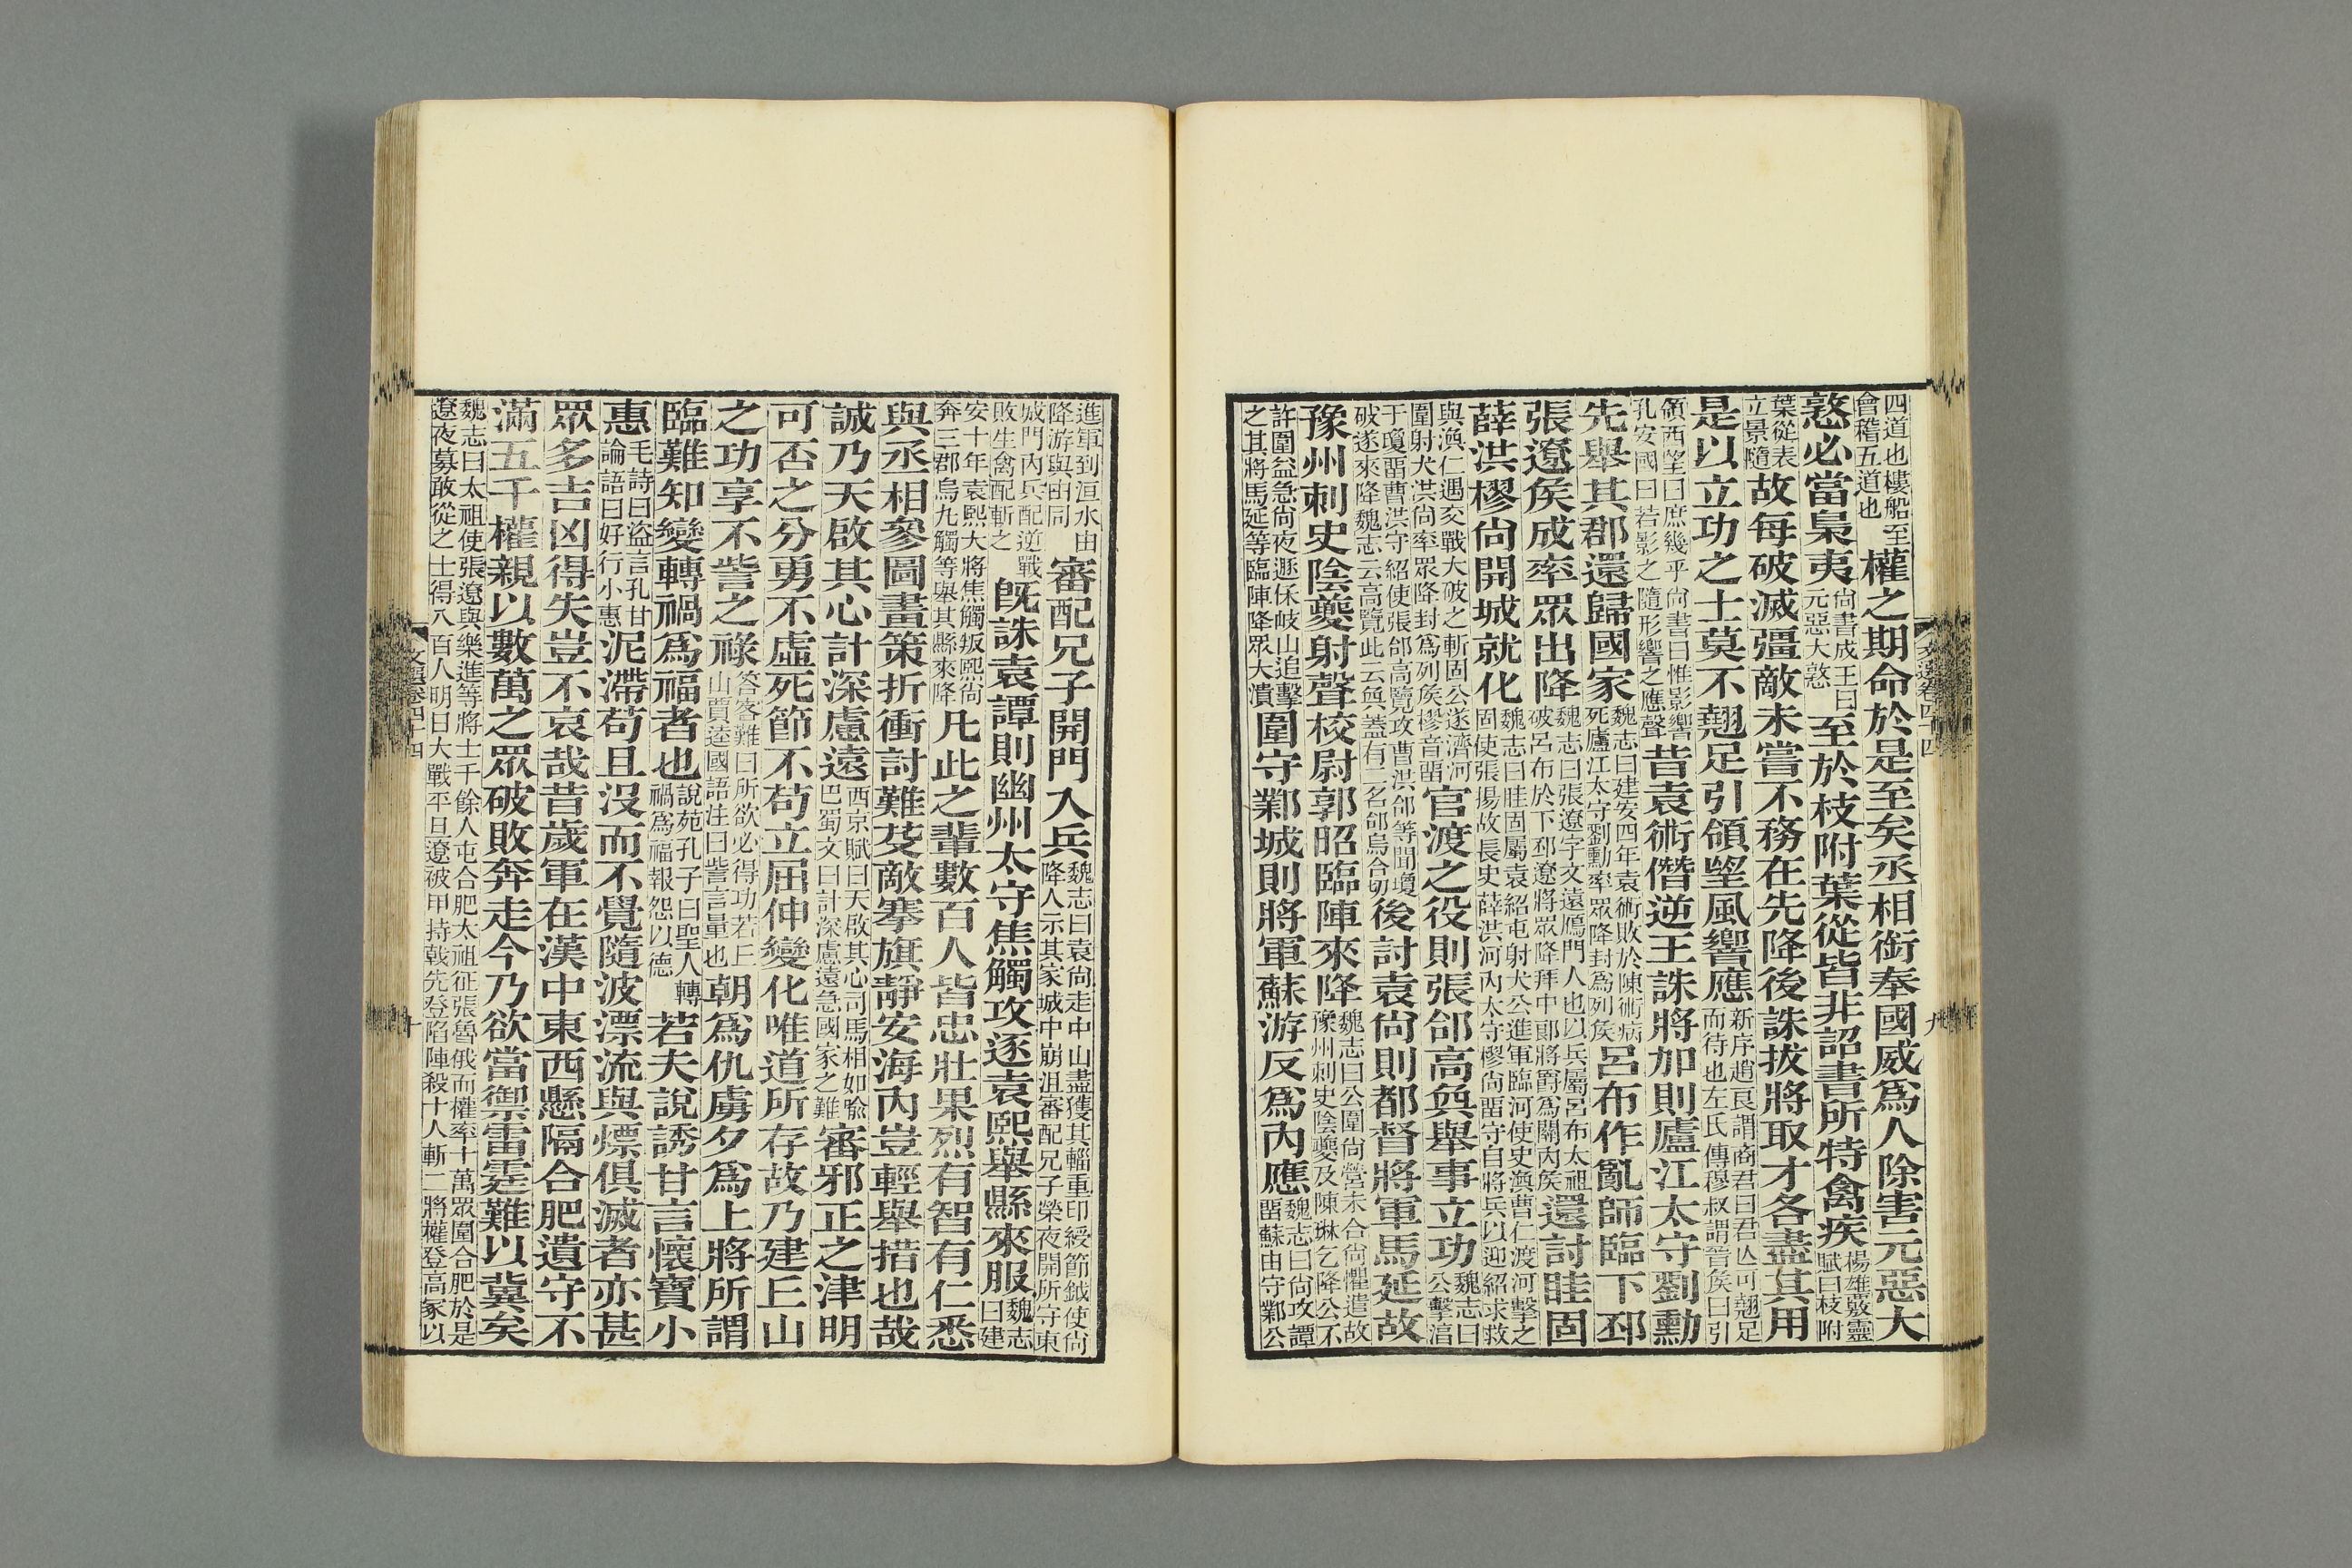 四道也樓船至會稽五道也權之期命於是至矣丞相銜奉國威爲人除害元惡大
憝必當梟夷尙書成王曰元惡大憝至於枝附葉從皆非詔書所特禽疾楊雄覈靈賦曰枝附
葉從表立景隨故每破滅彊敵未嘗不務在先降後誅拔將取才各盡其用
是以立功之士莫不翹足引領望風響應新序趙良謂商君曰君亾可翹足而待也左氏傳穆叔謂晉矦曰引
領西望曰庶幾乎尙書曰惟影響孔安國曰若影之隨形響之應聲昔袁術僭逆王誅將加則廬江太守劉勳
先舉其郡還歸國家魏志曰建安四年袁術敗於陳術病死廬江太守劉勳率眾降封爲列矦呂布作亂師臨下邳
張遼矦成率眾出降魏志曰張遼字文遠鴈門人也以兵屬呂布太祖破呂布於下邳遼將眾降拜中郞將爵爲關內矦還討眭固
薛洪樛尙開城就化魏志曰眭固屬袁紹屯射犬公進軍臨河使史渙曹仁渡河擊之固使張揚故長史薛洪河內太守樛尙畱守自將兵以迎紹求救
與渙仁遇交戰大破之斬固公遂濟河圍射犬洪尙率眾降封爲列矦樛音畱官渡之役則張郃高奐舉事立功魏志曰公擊湻
于瓊畱曹洪守紹使張郃高覽攻曹洪郃等聞瓊破遂來降魏志云高覽此云奐蓋有二名郃烏合切後討袁尙則都督將軍馬延故
豫州刺史陰夔射聲校尉郭昭臨陣來降魏志曰公圍尙營未合尙懼遣故豫州刺史陰夔及陳琳乞降公不
許圍益急尙夜遯保岐山追擊之其將馬延等臨陣降眾大潰圍守鄴城則將軍蘇游反爲內應魏志曰尙攻譚畱蘇由守鄴公
文選卷四十四
九
進軍到洹水由降游與由同審配兄子開門入兵魏志曰袁尙走中山盡獲其輜重印綬節鉞使尙降人示其家城中崩沮審配兄子榮夜開所守東
城門內兵配逆戰敗生禽配斬之旣誅袁譚則幽州太守焦觸攻逐袁熙舉縣來服魏志曰建
安十年袁熙大將焦觸叛熙尙奔三郡烏九觸等舉其縣來降凡此之輩數百人皆忠壯果烈有智有仁悉
與丞相參圖畫策折衝討難芟敵搴旗靜安海內豈輕舉措也哉
誠乃天啟其心計深慮遠西京賦曰天啟其心司馬相如喻巴蜀文曰計深慮遠急國家之難審邪正之津明
可否之分勇不虛死節不苟立屈伸變化唯道所存故乃建丘山
之功享不訾之祿答客難曰所欲必得功若丘山賈逵國語注曰訾言量也朝爲仇虜夕爲上將所謂
臨難知變轉禍爲福者也說苑孔子曰聖人轉禍爲福報怨以德若夫說誘甘言懷寶小
惠毛詩曰盜言孔甘論語曰好行小惠泥滯苟且沒而不覺隨波漂流與熛俱滅者亦甚
眾多吉凶得失豈不哀哉昔歲軍在漢中東西懸隔合肥遺守不
滿五千權親以數萬之眾破敗奔走今乃欲當禦雷霆難以冀矣
魏志曰太祖使張遼與樂進等將士千餘人屯合肥大祖征張魯俄而權率十萬眾圍合肥於是遼夜募敢從之士得八百人明日大戰平旦遼破甲持戟先登陷陣殺十人斬二將權登高冢以
文選卷四十四
十